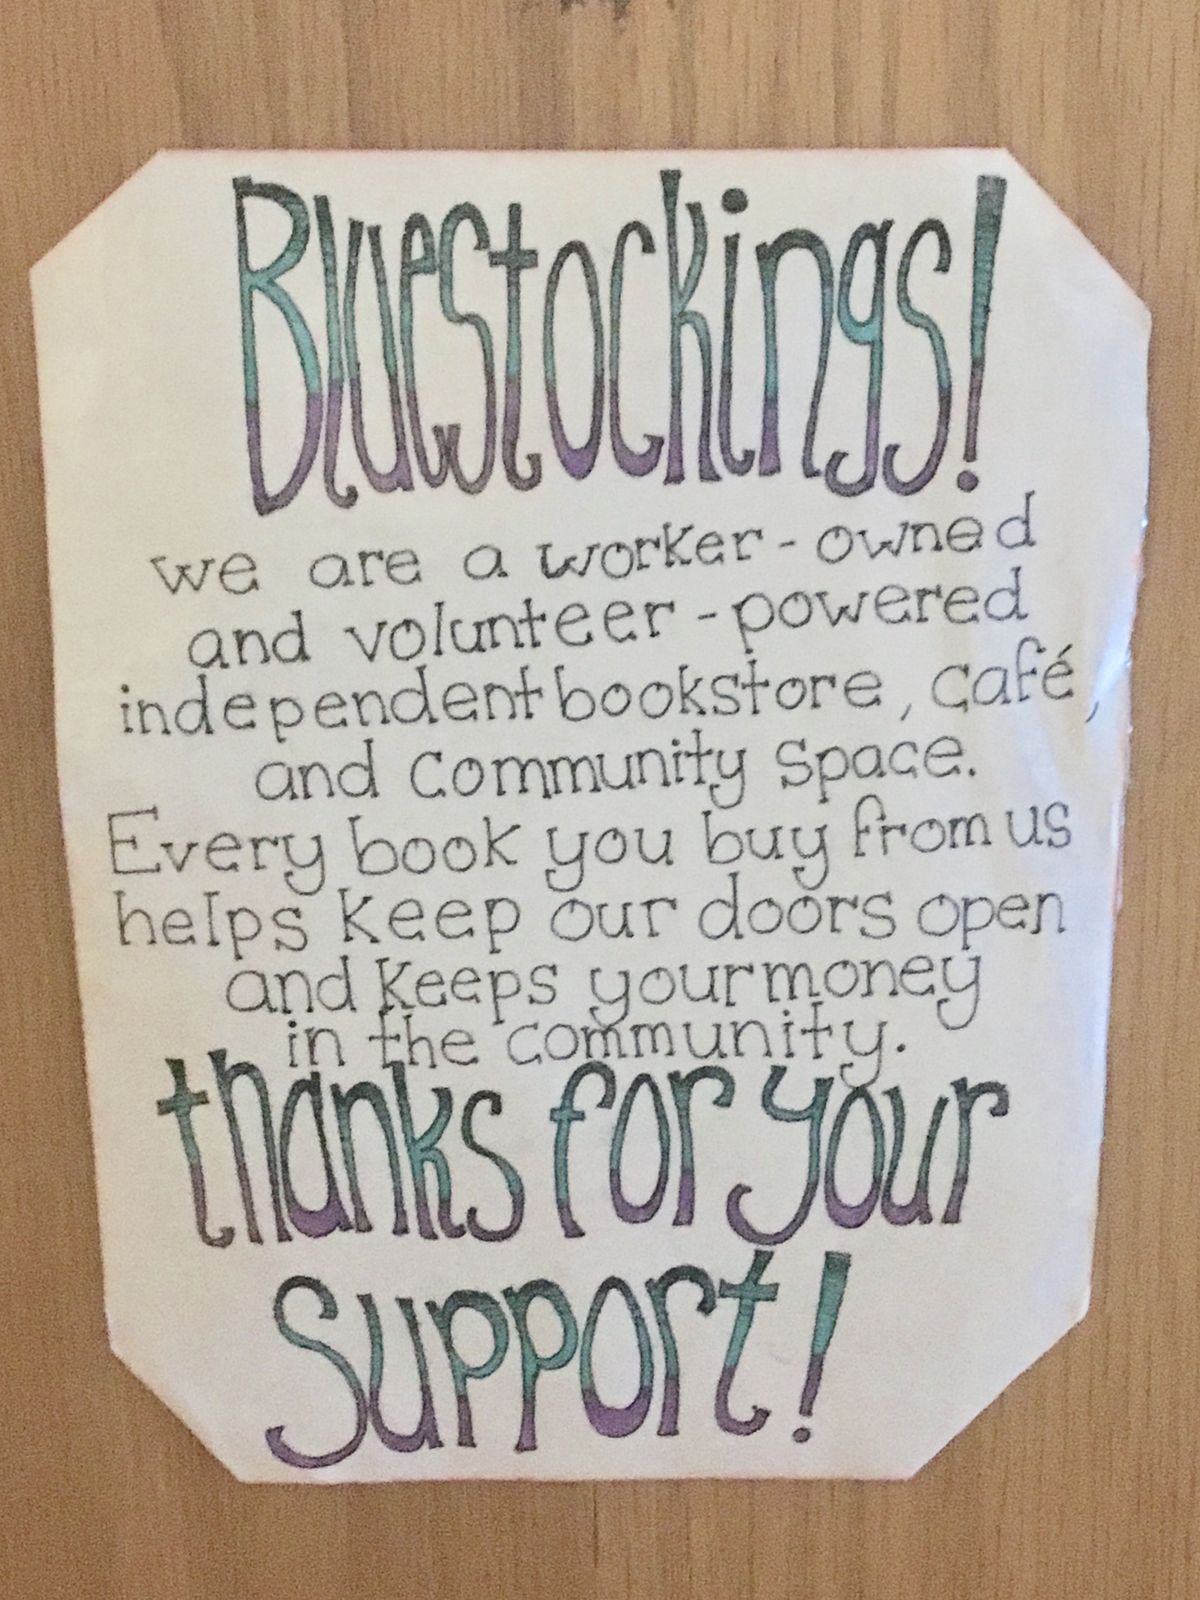 Bluestockings!
we are a worker-owned
and volunteer-powered
independent bookstore, café,
and community space.
Every book you buy from us
helps keep our doors open
and keeps your money
in the community.
thanks for your
support!